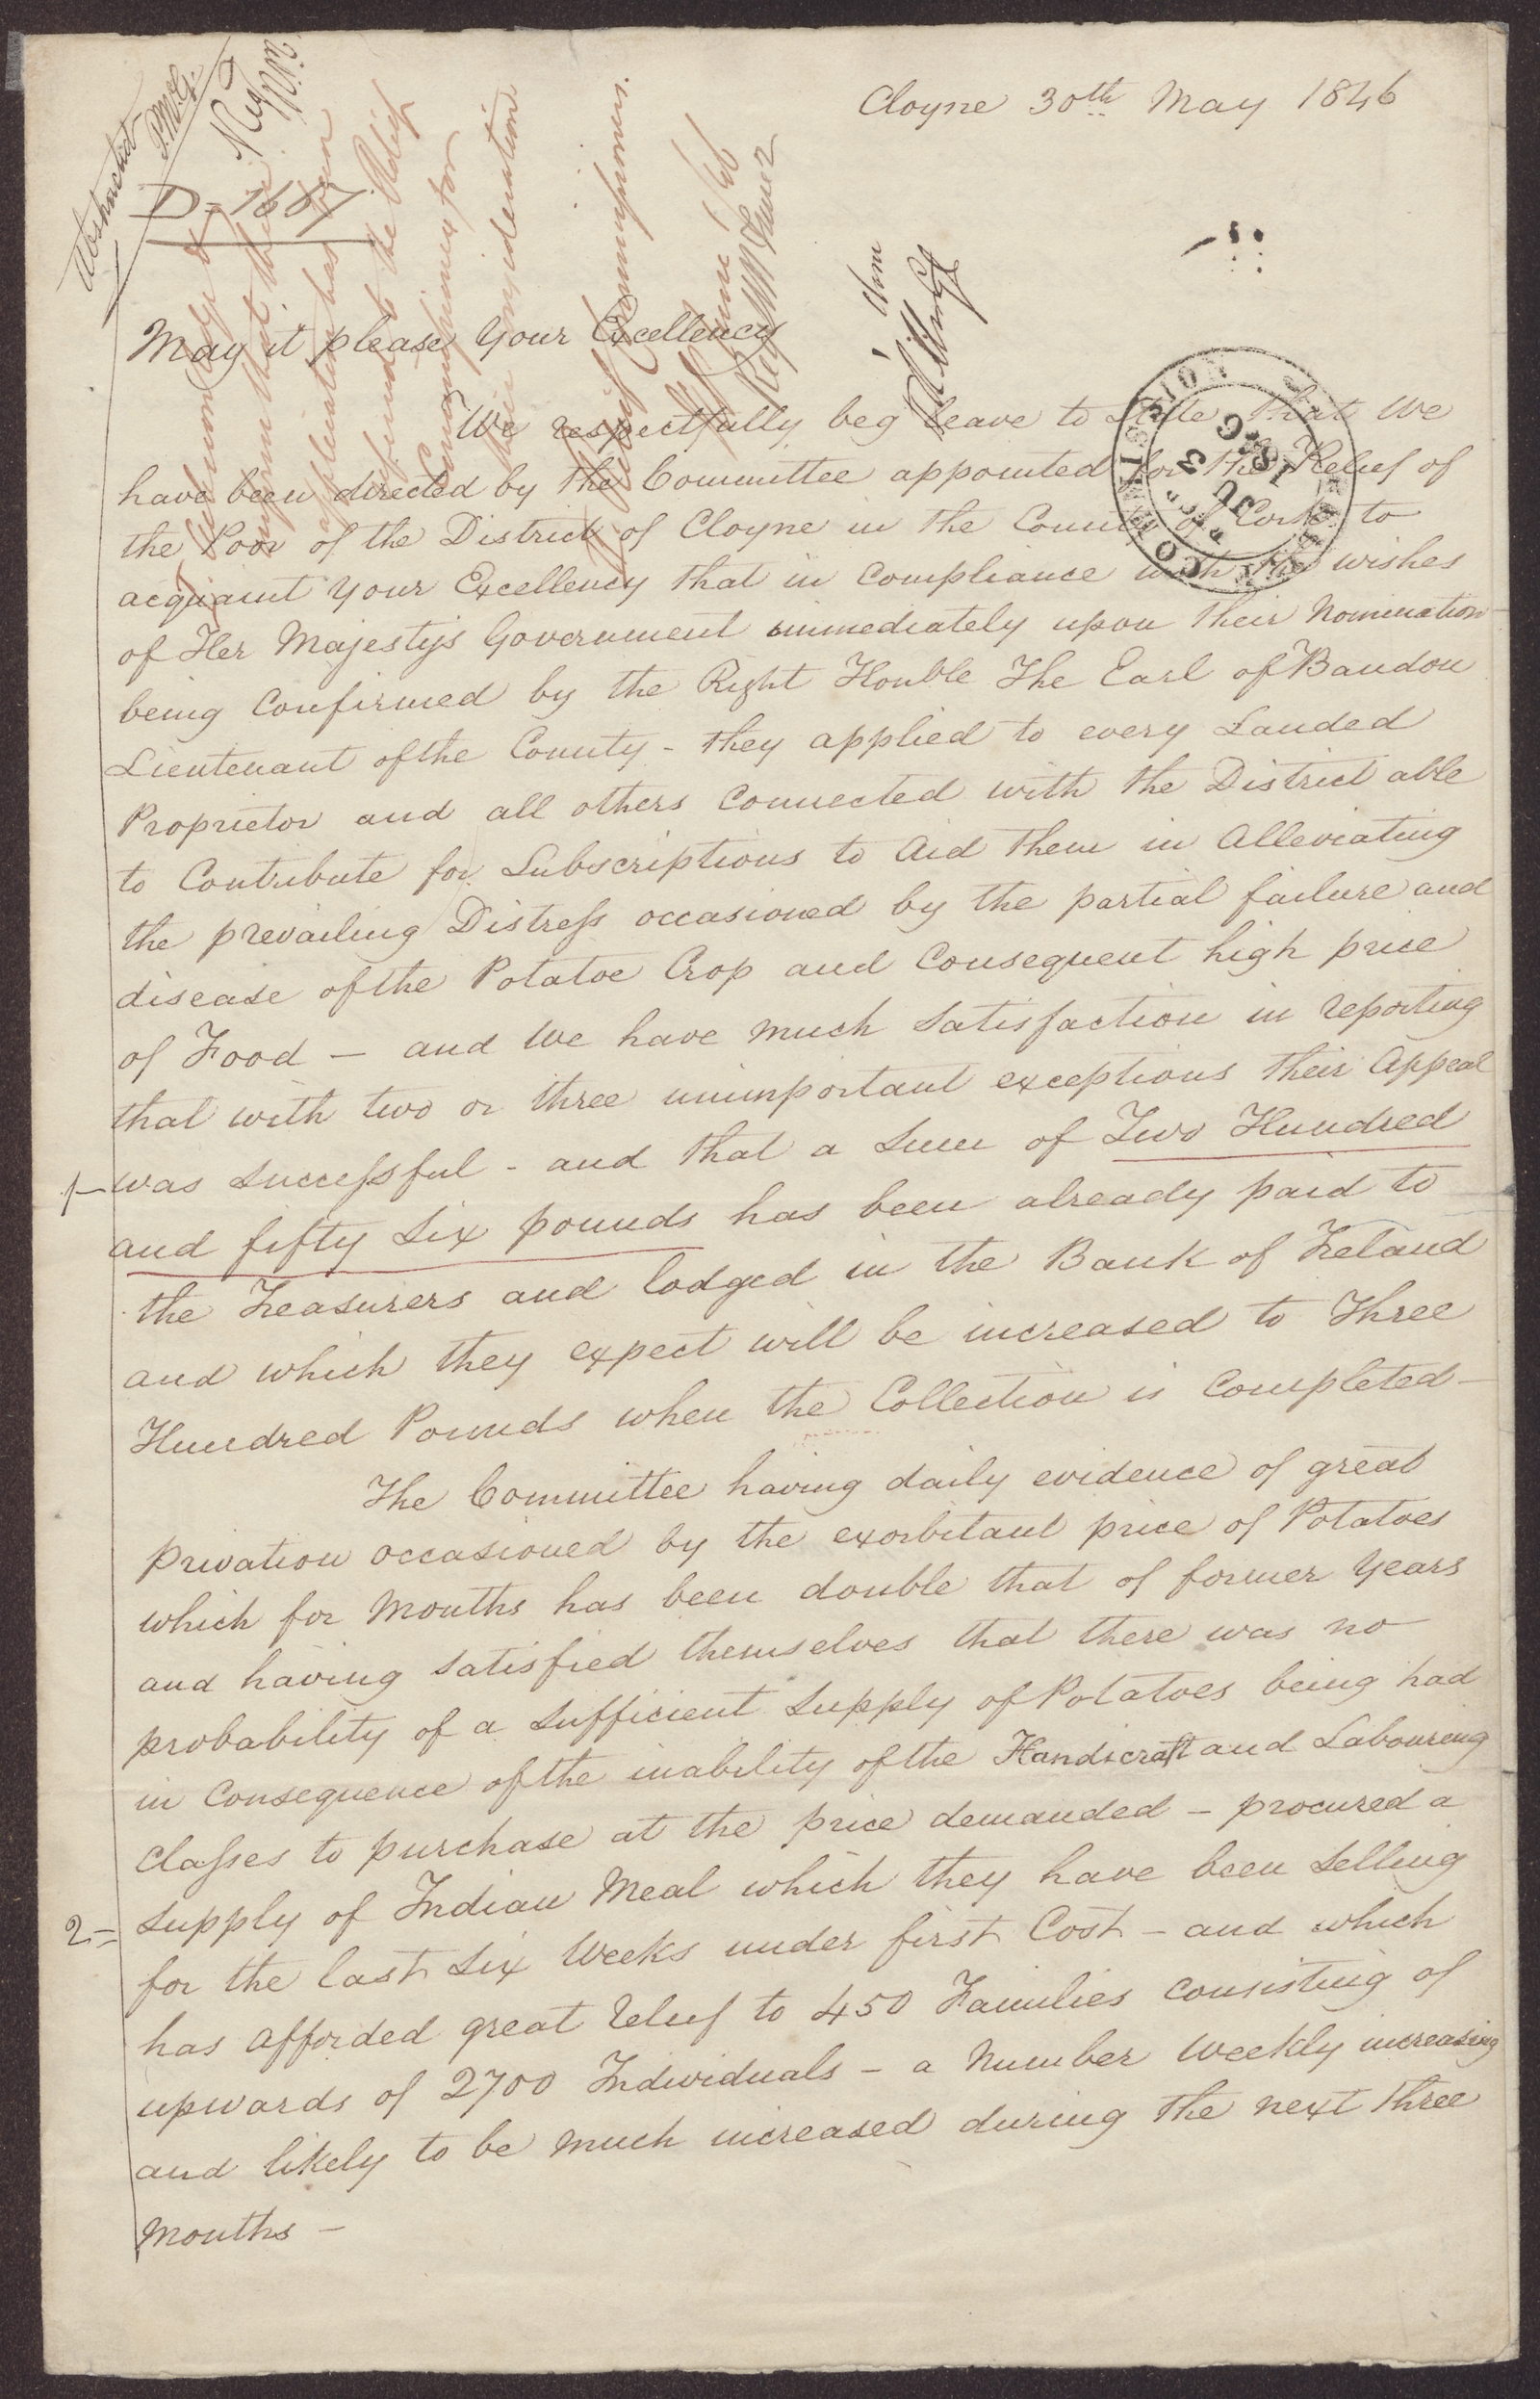 Cloyne 30th May 1846
Abstracted
P.W.G.
D-1687
Acknowledge &
inform that their
application has been
referred to the Relief
Commissioners for
their consideration
Relief Commissioners.
May it please your Excellency
We respectfully beg leave to State that We
have been directed by the Committee appointed for the Relief of
the Poor of the District of Cloyne in the County of Cork to
acquaint your Excellency that in Compliance with the wishes
of Her Majestys Government immediately upon their Nomination
being Confirmed by the Right Honble The Earl of Bandon
Lieutenant of the County - they applied to every Landed
Proprietor and all others Connected with the District able
to Contribute for Subscriptions to Aid them in Alleviating
the prevailing Distress occasioned by the partial failure and
disease of the Potatoe Crop and Consequent high price
of Food - and We have much Satisfaction in reporting
that with two or three unimportant exceptions their Appeal
1- was Successful - and that a Sum of Two Hundred
and fifty Six pounds has been already paid to
the Treasurers and lodged in the Bank of Ireland
and which they expect will be increased to Three
Hundred Pounds when the Collection is Completed -
The Committee having daily evidence of great
privation occasioned by the exorbitant price of Potatoes
which for Months has been double that of former Years
and having Satisfied themselves that there was no
probability of a Sufficient Supply of Potatoes being had
in Consequence of the inability of the Handicraft and Labouring
Classes to purchase at the price demanded - procured a
2= Supply of Indian Meal which they have been Selling
for the last Six Weeks under first Cost - and which
has afforded great relief to 450 Families Consisting of
upwards of 2700 Individuals - a Number Weekly increasing
and likely to be much increased during the next three
Months -